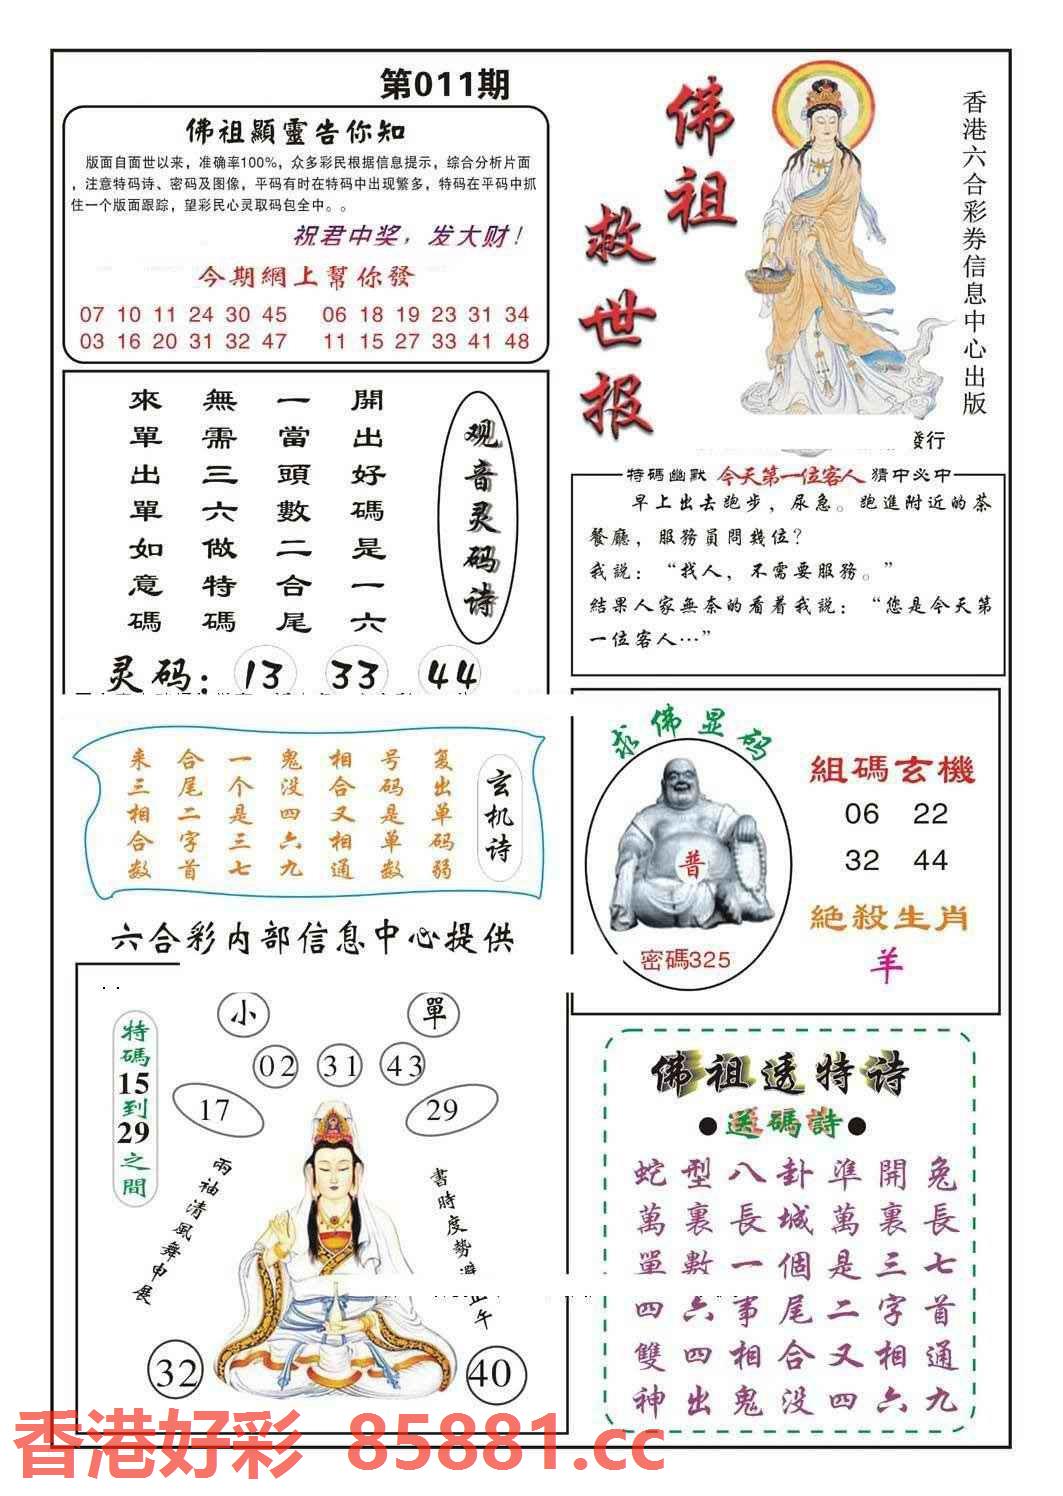 第011期
佛祖顯靈告你知
版面自面世以来，准确率100%，众多彩民根据信息提示，综合分析片面
，注意特码诗、密码及图像，平码有时在特码中出现繁多，特码在平码中抓
住一个版面跟踪，望彩民心灵取码包全中。。
祝君中奖，发大财！
今期網上幫你發
07 10 11 24 30 45 06 18 19 23 31 34
03 16 20 31 32 47 11 15 27 33 41 48
佛祖
救世报
香港六合彩券信息中心出版
發行
观音灵码诗
開出好碼是一六
一當頭數二合尾
無需三六做特碼
來單出單如意碼
灵码：13 33 44
特碼幽默 今天第一位客人 猜中必中
早上出去跑步，尿急。跑進附近的茶
餐廳，服務員問幾位？
我説：“找人，不需要服務。”
結果人家無奈的看着我説：“您是今天第
一位客人…”
玄机诗
复出单码弱
号码是单数
相合又相通
鬼没四六九
一个是三七
合尾二字首
来三相合数
六合彩内部信息中心提供
求佛显码
普
密碼325
組碼玄機
06 22
32 44
絕殺生肖
羊
小 單
02 31 43
17 29
特碼15到29之間
兩袖清風舞申展
書時度勢避正午
32 40
佛祖透特诗
●送碼詩●
蛇型八卦準開兔
萬裏長城萬裏長
單數一個是三七
四六事尾二字首
雙四相合又相通
神出鬼没四六九
香港好彩 85881.cc